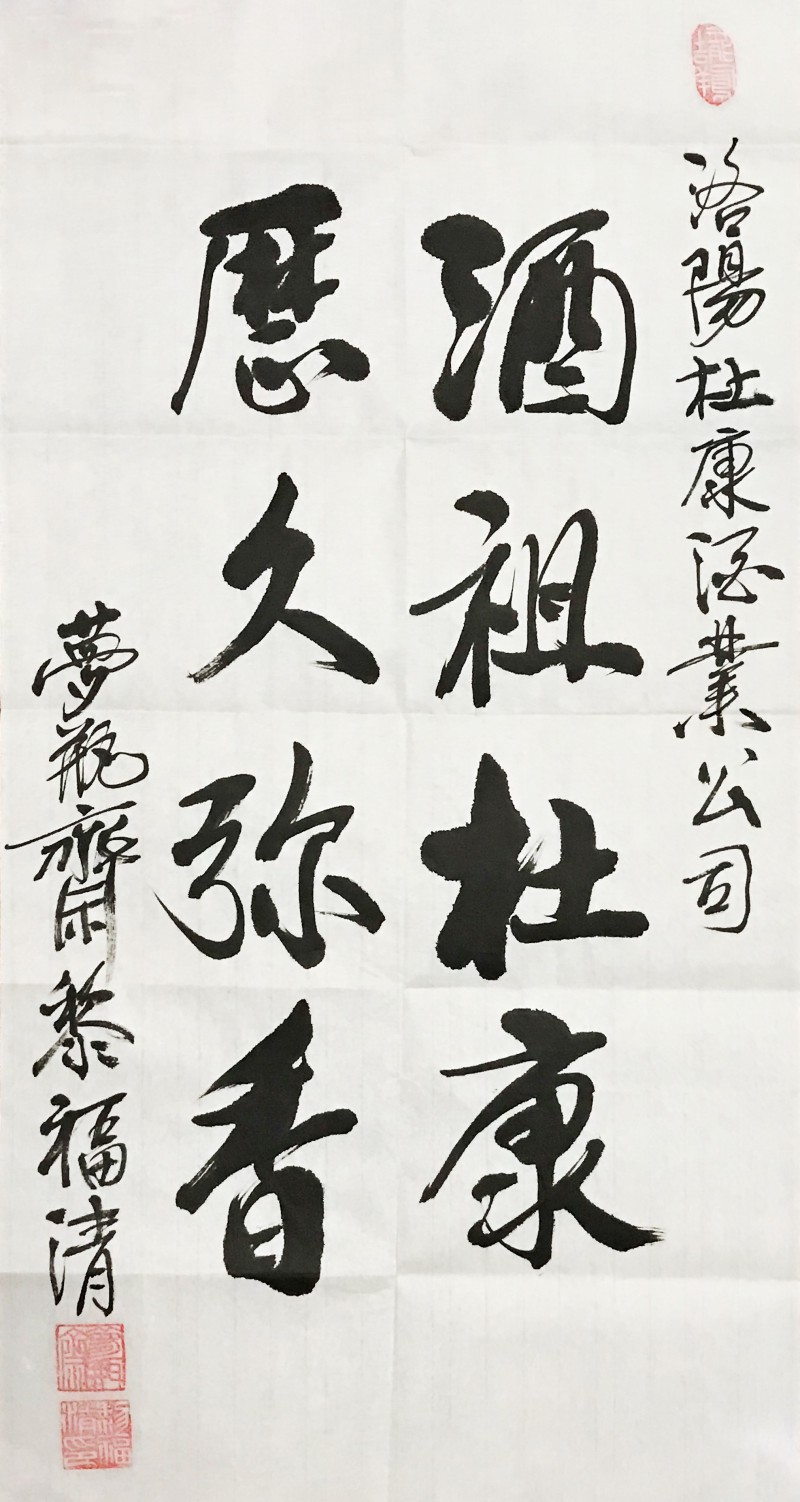 洛陽杜康酒業公司
酒祖杜康
歷久弥香
夢瓶齋黎福清